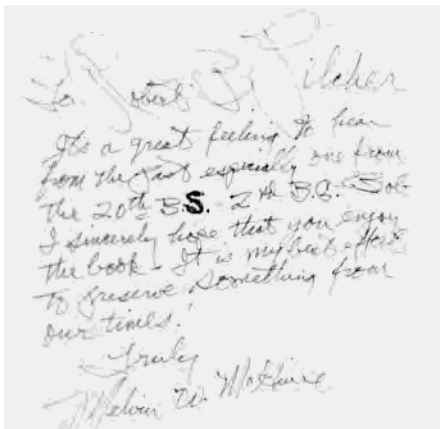 To Robert B. Pilcher
It's a great feeling to hear
from the past especially one from
the 20th B.S. - 2nd B.G. - So-
I sincerely hope that you enjoy
the book - It is my best effort
to preserve something from
our times!
Truly
Melvin W. McGuire